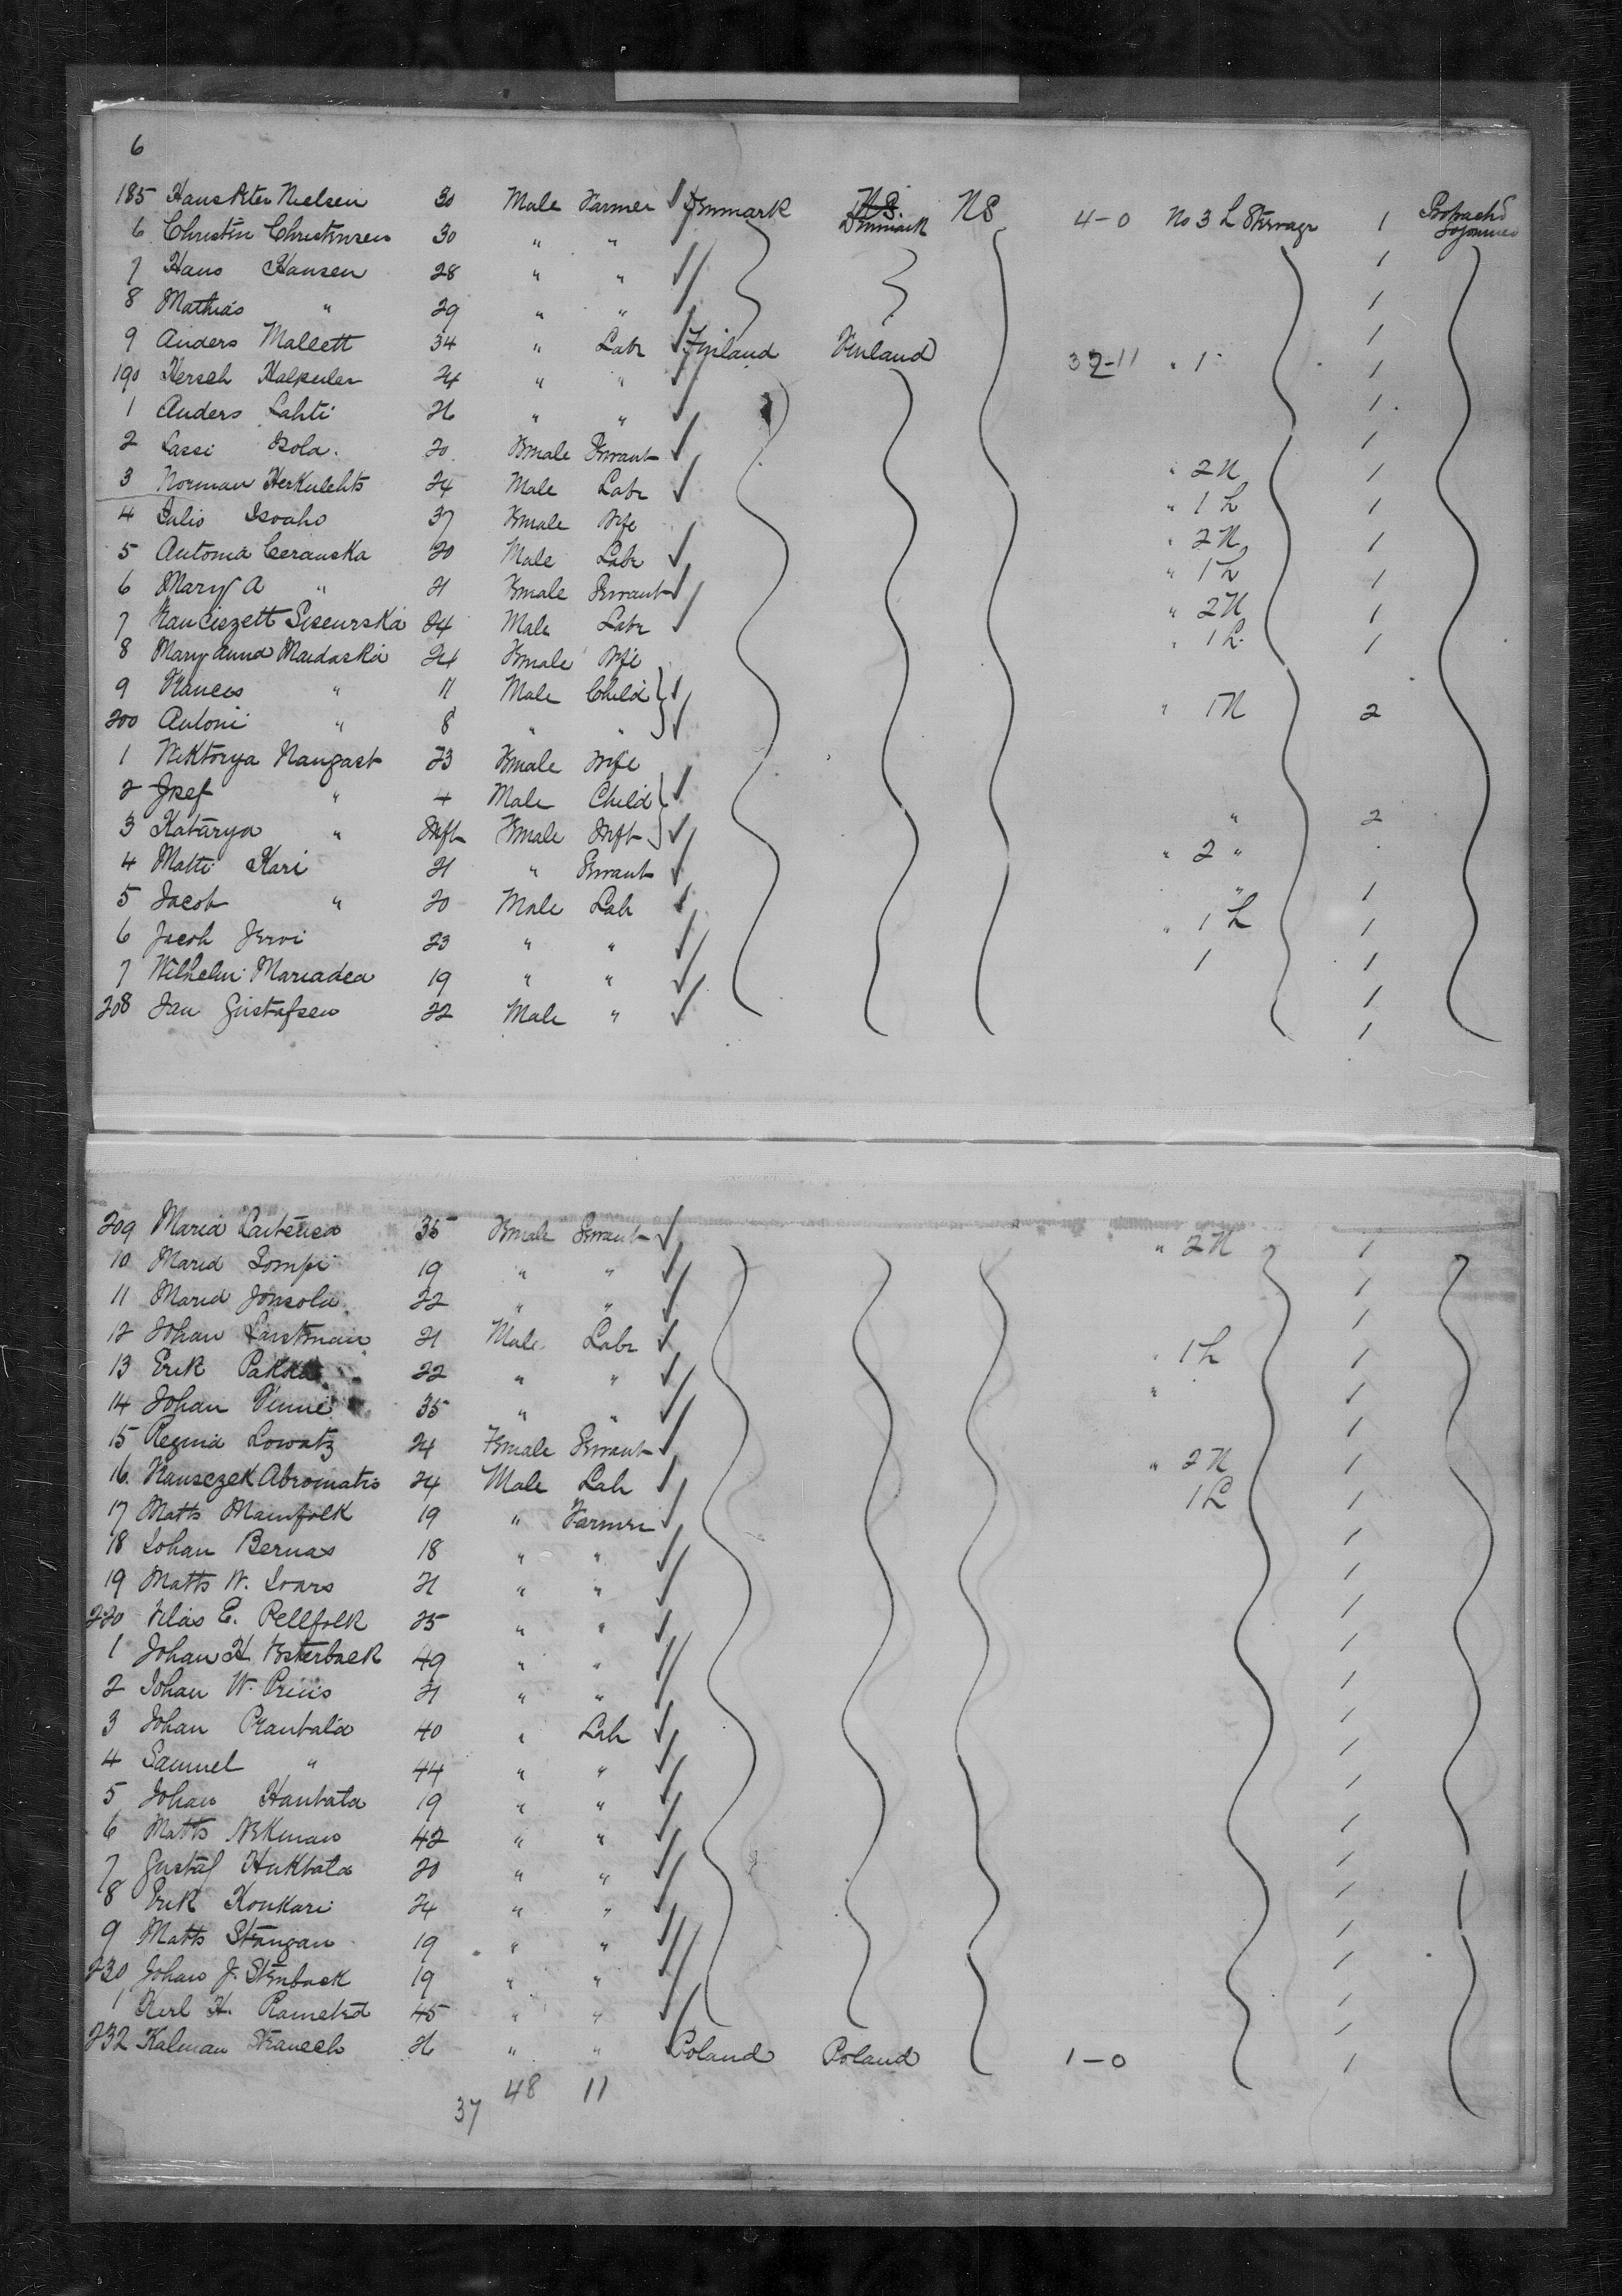 6
185 Hans Peter Nielsen 30 Male Farmer Denmark Denmark U.S. 4-0 No 3 L Steerage 1 Protracted Sojourn
6 Christen Christensen 30 " " 1
7 Hans Hansen 28 " " 1
8 Mathias " 29 " " 1
9 Anders Mallett 34 " Labr Finland Finland 32-11 " 1 1
190 Hersch Kalpeiler 24 " " 1
1 Anders Lahti 26 " " 1
2 Lassi Isola 20 Female Servant " 2 N 1
3 Norman Herkulehts 24 Male Labr " 1 L 1
4 Julio Isoaho 37 Female Wife " 2 N 1
5 Antonia Ceranska 20 Male Labr " 1 L 1
6 Mary A " 21 Female Servant " 2 N 1
7 Franciszett Siseurska 24 Male Labr " 1 L 1
8 Mary Anna Maidaska 24 Female Wife
9 Frances " 11 Male Child " 1 N 2
200 Antoni " 8 " "
1 Wiktorya Naugast 23 Female Wife
2 Josef " 4 Male Child " 2
3 Katarya " Inft Female Inft
4 Matti Kari 21 " Servant " 2 " 1
5 Jacob " 20 Male Labr " 1 L 1
6 Jacob Jervi 23 " " 1 1
7 Wilhelm Mariadea 19 " " 1
208 Jan Gustafsen 22 Male " 1
209 Maria Laitenea 35 Female Servant " 2 N 1
10 Maria Lompi 19 " " 1
11 Maria Jonsola 22 " " 1
12 Johan Lantman 21 Male Labr " 1 L 1
13 Erik Pakka 22 " " " 1
14 Johan Vinni 35 " " 1
15 Regina Lowatz 24 Female Servant " 2 N 1
16 Fransezek Abromatis 24 Male Lab 1 L 1
17 Matts Mainfolk 19 " Farmer 1
18 Johan Bernas 18 " " 1
19 Matts W. Ivars 21 " " 1
220 Silas E. Pellfolk 25 " " 1
1 Johan H. Esterback 49 " " 1
2 Johan W. Priiis 21 " " 1
3 Johan Prantala 40 " Lab 1
4 Samuel " 44 " " 1
5 Johan Hantala 19 " " 1
6 Matts Wikman 42 " " 1
7 Gustaf Huktala 20 " " 1
8 Erik Konkari 24 " " 1
9 Matts Stangan 19 " " 1
230 Johan J. Stenback 19 " " 1
1 Karl H. 45 " " 1
232 Kalman 26 " " Poland Poland 1-0 1
48 11
37